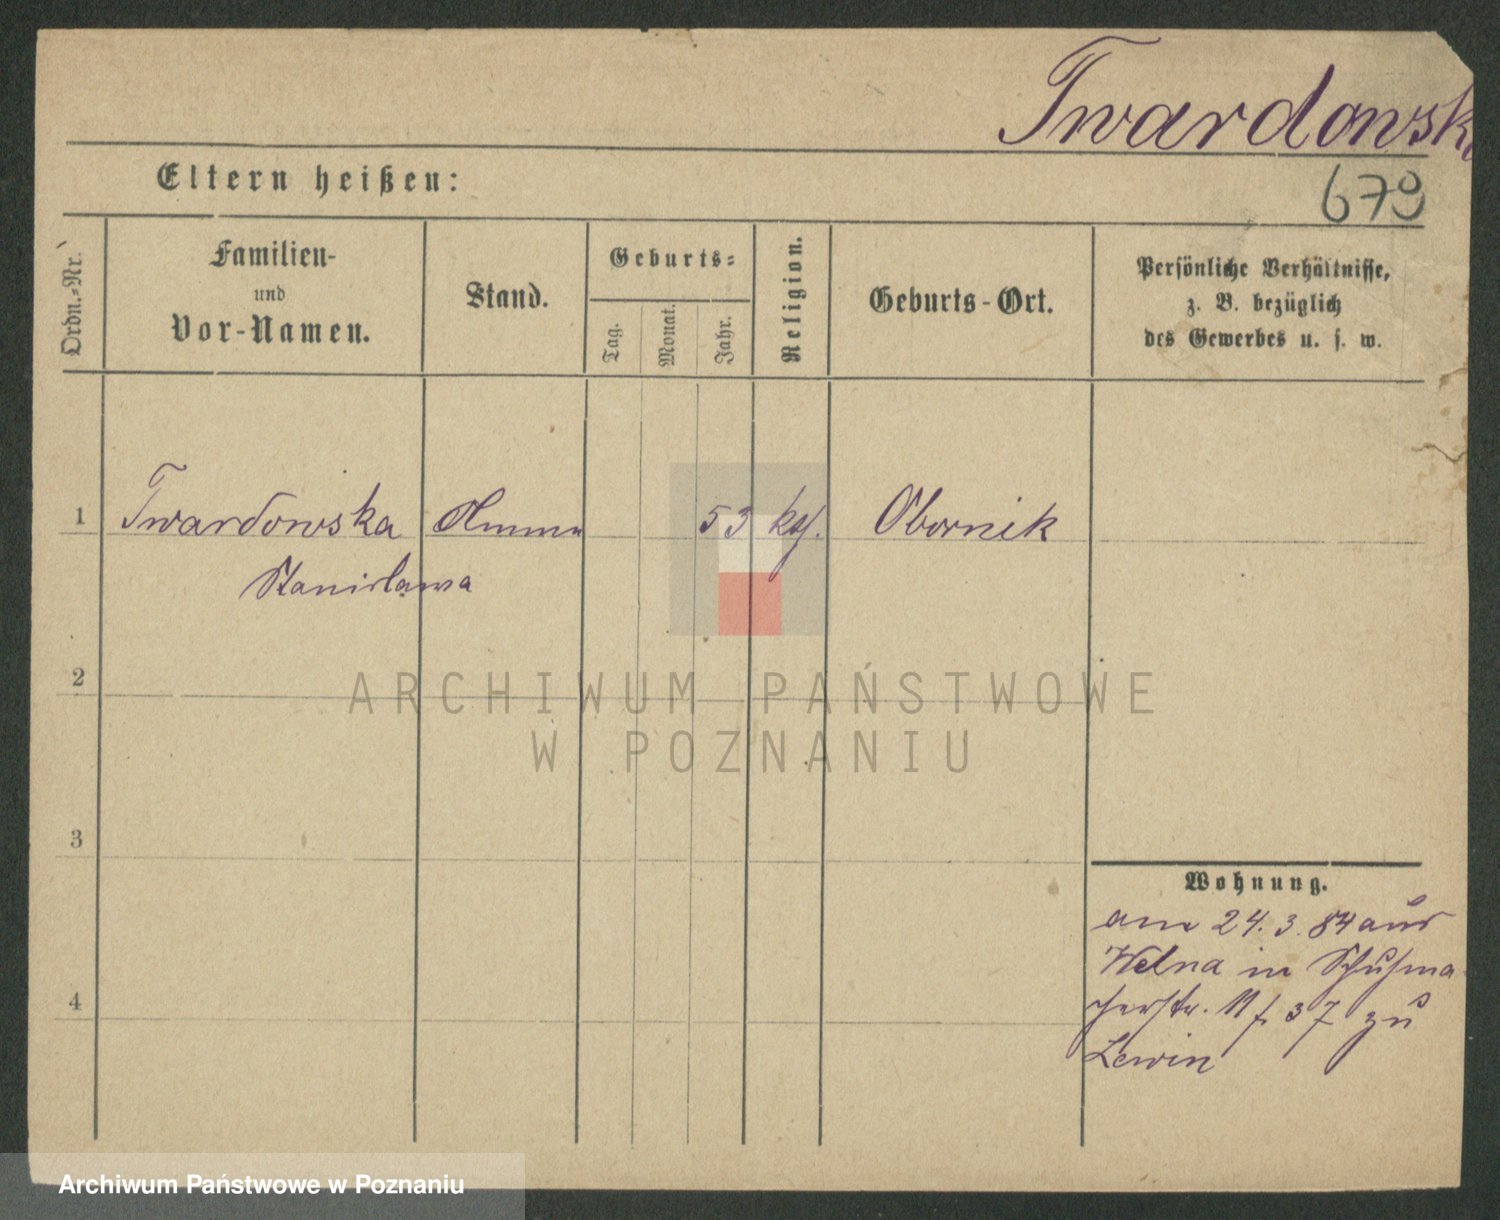 Twardowsk
Eltern heißen:
679
Ordn.-Nr.
Familien-
und
Vor-Namen.
Stand.
Geburts-
Tag.
Monat.
Jahr.
Religion.
Geburts-Ort.
Persönliche Verhältnisse,
z. B. bezüglich
des Gewerbes u. s. w.
1 Twardowska Amme 53 kth. Obornik
Stanislawa
2
3
4
Wohnung.
am 24.3.84 aus
Welna in Schuhma
cherstr. 11 37 zu
Lewin
ARCHIWUM PAŃSTWOWE
W POZNANIU
Archiwum Państwowe w Poznaniu